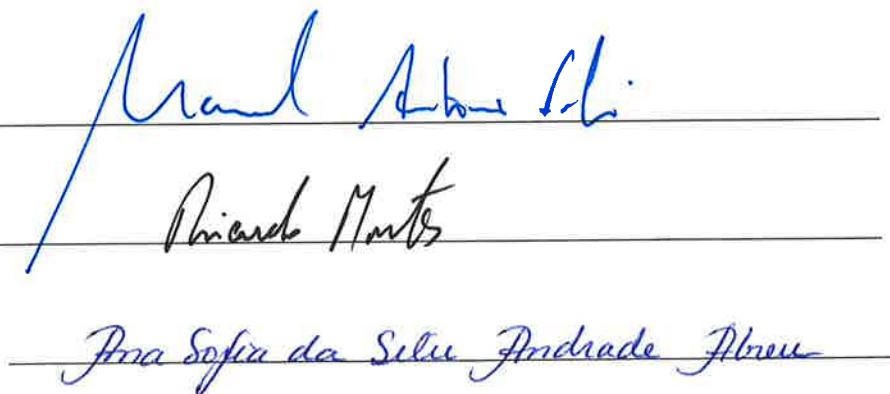 Manuel António
Ricardo Montes
Ana Sofia da Silva Andrade Abreu